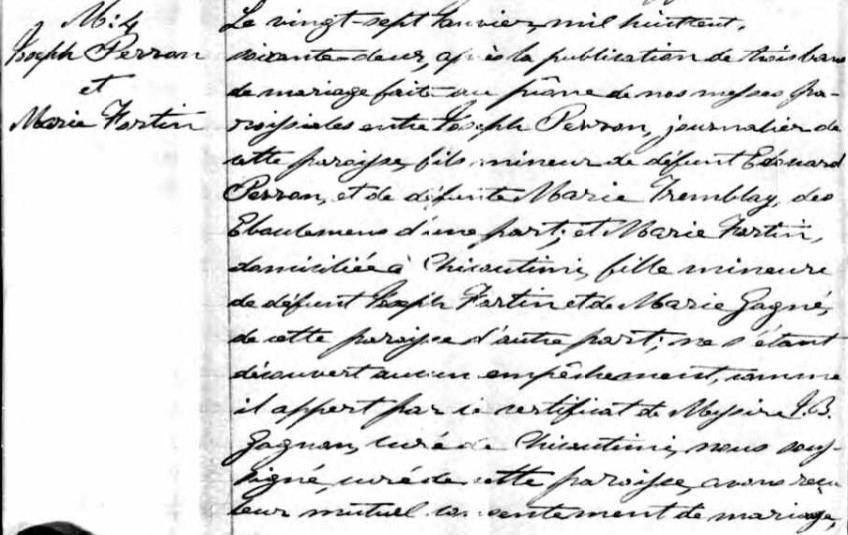 M: 4
Joseph Perron
et
Marie Fortin
Le vingt-sept Janvier, mil huit cent,
soixante-deux, après la publication de trois bans
de mariage faite au prône de nos messes pa-
roissiales entre Joseph Perron, journalier de
cette paroisse, fils mineur de défunt Edouard
Perron, et de défunte Marie Tremblay, des
Eboulemens d'une part; et Marie Fortin,
domiciliée à Chicoutimi, fille mineure
de défunt Joseph Fortin et de Marie Gagné,
de cette paroisse d'autre part; ne s'étant
découvert aucun empêchement, comme
il appert par le certificat de Messire J. B.
Gagnon, curé de Chicoutimi, nous sous-
signé, curé de cette paroisse, avons reçu
leur mutuel consentement de mariage,